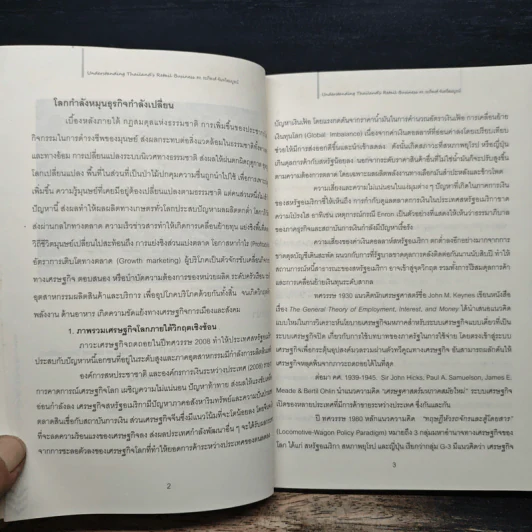 Understanding Thailand's Retail Business
โลกกำลังหมุนธุรกิจกำลังเปลี่ยน
เบื้องหลังภายใต้ กฎสมดุลแห่งธรรมชาติ การเพิ่มขึ้นของประชากร
กิจกรรมในการดำรงชีพของมนุษย์ ส่งผลกระทบต่อสิ่งแวดล้อมในธรรมชาติทั้ง
และทางอ้อม การเปลี่ยนแปลงระบบนิเวศทางธรรมชาติ ส่งผลให้ฝนตกผิดฤดู
โลกเปลี่ยนแปลง พื้นที่ในส่วนที่เป็นป่าไม้ปกคลุมความชื้นถูกนำไปใช้ เพื่อการ
เพิ่มขึ้น ความรู้มนุษย์ที่เคยมีอยู่ต้องเปลี่ยนแปลงตามธรรมชาติ
ปัญหานี้ ส่งผลทำให้ผลผลิตทางเกษตรทั่วโลกประสบปัญหาผลผลิตตกต่ำ
ส่งผ่านกลไกทางตลาด ความเร็วข่าวสารทำให้เกิดการเคลื่อนย้ายทุน
วิถีชีวิตมนุษย์เปลี่ยนไปสะท้อนถึง การแบ่งส่วนแบ่งตลาด โอกาสหากำไร
อัตราการเติบโตทางตลาด (Growth marketing) ผู้บริโภคเป็นตัวจักรขับเคลื่อน
ทางเศรษฐกิจ ตอบสนอง หรือบำบัดความต้องการของหน่วยผลิต ระดับครัวเรือน
อุตสาหกรรมผลิตสินค้าและบริการ เพื่ออุปโภคบริโภคด้วยกันทั้งสิ้น
พลังงาน ด้านอาหาร เกิดความขัดแย้งทางเศรษฐกิจการเมืองและสังคม
1. ภาพรวมเศรษฐกิจโลกภายใต้วิกฤตเชิงซ้อน
ภาวะเศรษฐกิจถดถอยในปีทศวรรษ 2008 ทำให้ประเทศสหรัฐ
ประสบกับปัญหาหนี้เอกชนที่อยู่ในระดับสูงและภาคอุตสาหกรรมมีกำลังการผลิต
องค์การสหประชาชาติ และองค์กรการเงินระหว่างประเทศ (2008)
การคาดการณ์เศรษฐกิจโลก เผชิญความไม่แน่นอน ปัญหาท้าทาย ส่งผลให้แรง
อ่อนกำลังลง เศรษฐกิจสหรัฐอเมริกามีปัญหาภาคอสังหาริมทรัพย์และความปั่นป่วน
ตลาดสินเชื่อกับสถาบันการเงิน ส่วนเศรษฐกิจจีนซึ่งมีแนวโน้มที่จะโตน้อยลง
ที่จะลดความร้อนแรงของเศรษฐกิจลง ส่งผลประเทศกำลังพัฒนาอื่น ๆ จะได้รับ
จากการชะลอตัวลงของเศรษฐกิจโลกที่ทำให้ยอดการค้าระหว่างประเทศของตน
2
Understanding Thailand's Retail Business
ปัญหาเงินเฟ้อ โดยแรงกดดันจากราคาน้ำมันในการคำนวณอัตราเงินเฟ้อ การเคลื่อนย้าย
เงินทุนโลก (Global Imbalance) เนื่องจากค่าเงินดอลลาร์ที่อ่อนค่าลงโดยเปรียบเทียบ
ช่วยให้มีการส่งออกดีขึ้นและนำเข้าลดลง ดังนั้นเกิดสภาวะที่สหภาพยุโรป หรือญี่ปุ่น
เกินดุลการค้ากับสหรัฐน้อยลง นอกจากระดับราคาสินค้าอื่นที่ไม่ใช่น้ำมันก็จะปรับสูงขึ้น
ตามความต้องการตลาด โดยเฉพาะผลผลิตพลังงานทางเลือกมันสำปะหลังและข้าวโพด
ความเสี่ยงและความไม่แน่นอนในแง่มุมต่าง ๆ ปัญหาที่เกิดในภาคการเงิน
ของสหรัฐอเมริกาชี้ให้เห็นถึง การกำกับดูแลตลาดการเงินในประเทศสหรัฐอเมริกาขาด
ความโปร่งใส อาทิเช่น เหตุการณ์กรณี Enron เป็นตัวอย่างที่แสดงให้เห็นว่าธรรมาภิบาล
ของภาคธุรกิจและสถาบันการเงินกำลังมีปัญหาที่แท้จริง
ความเสี่ยงของค่าเงินดอลลาร์สหรัฐอเมริกา ตกต่ำลงอีกอย่างมากจากการ
ขาดดุลบัญชีเดินสะพัด แนวกับการที่รัฐบาลขาดดุลการคลังติดต่อกันนานนับสิบปี ทำให้
สถานการณ์หนี้สาธารณะของสหรัฐอเมริกา อาจเข้าสู่จุดวิกฤต รวมทั้งการปรับสมดุลการค้า
และการเคลื่อนย้ายเงินทุนระดับสากล
ทศวรรษ 1930 แนวคิดนักเศรษฐศาสตร์ชื่อ John M. Keynes เขียนหนังสือ
เรื่อง The General Theory of Employment, Interest, and Money ได้นำเสนอแนวคิด
แบบใหม่ในการวิเคราะห์นโยบายเศรษฐกิจมหภาคสำหรับระบบเศรษฐกิจแบบเดี่ยวที่เป็น
ระบบเศรษฐกิจปิด เกี่ยวกับการใช้บทบาทของภาครัฐในการใช้จ่าย โดยตรงเข้าสู่ระบบ
เศรษฐกิจเพื่อกระตุ้นอุปสงค์มวลรวมผ่านตัวทวีคูณทางเศรษฐกิจ อันสามารถผลักดันให้
เศรษฐกิจหลุดพ้นจากภาวะถดถอยได้ในที่สุด
ต่อมา คศ. 1939-1945. Sir John Hicks, Paul A. Samuelson, James E.
Meade & Bertil Ohlin นำแนวความคิด "เศรษฐศาสตร์มหภาคสมัยใหม่" ระบบเศรษฐกิจ
เปิดของหลายประเทศที่มีการค้าขายระหว่างประเทศ ซึ่งกันและกัน
ปี ทศวรรษ 1980 หลักแนวความคิด "ทฤษฎีหัวรถจักรและตู้โดยสาร"
(Locomotive-Wagon Policy Paradigm) หมายถึง 3 กลุ่มมหาอำนาจทางเศรษฐกิจของ
โลก ได้แก่ สหรัฐอเมริกา สหภาพยุโรป และญี่ปุ่น เรียกว่ากลุ่ม G-3 มีแนวคิดว่า เศรษฐกิจ
3